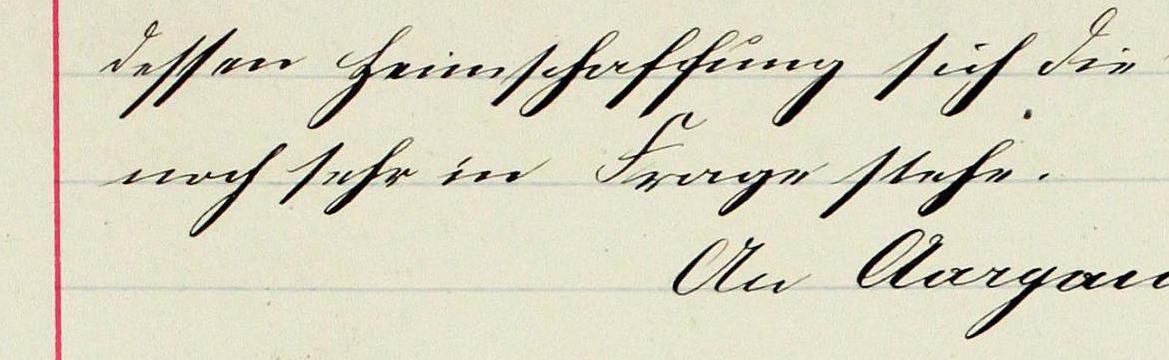 dessen Heimschaffung sich die
noch sehr in Frage stehe.
An Aargau